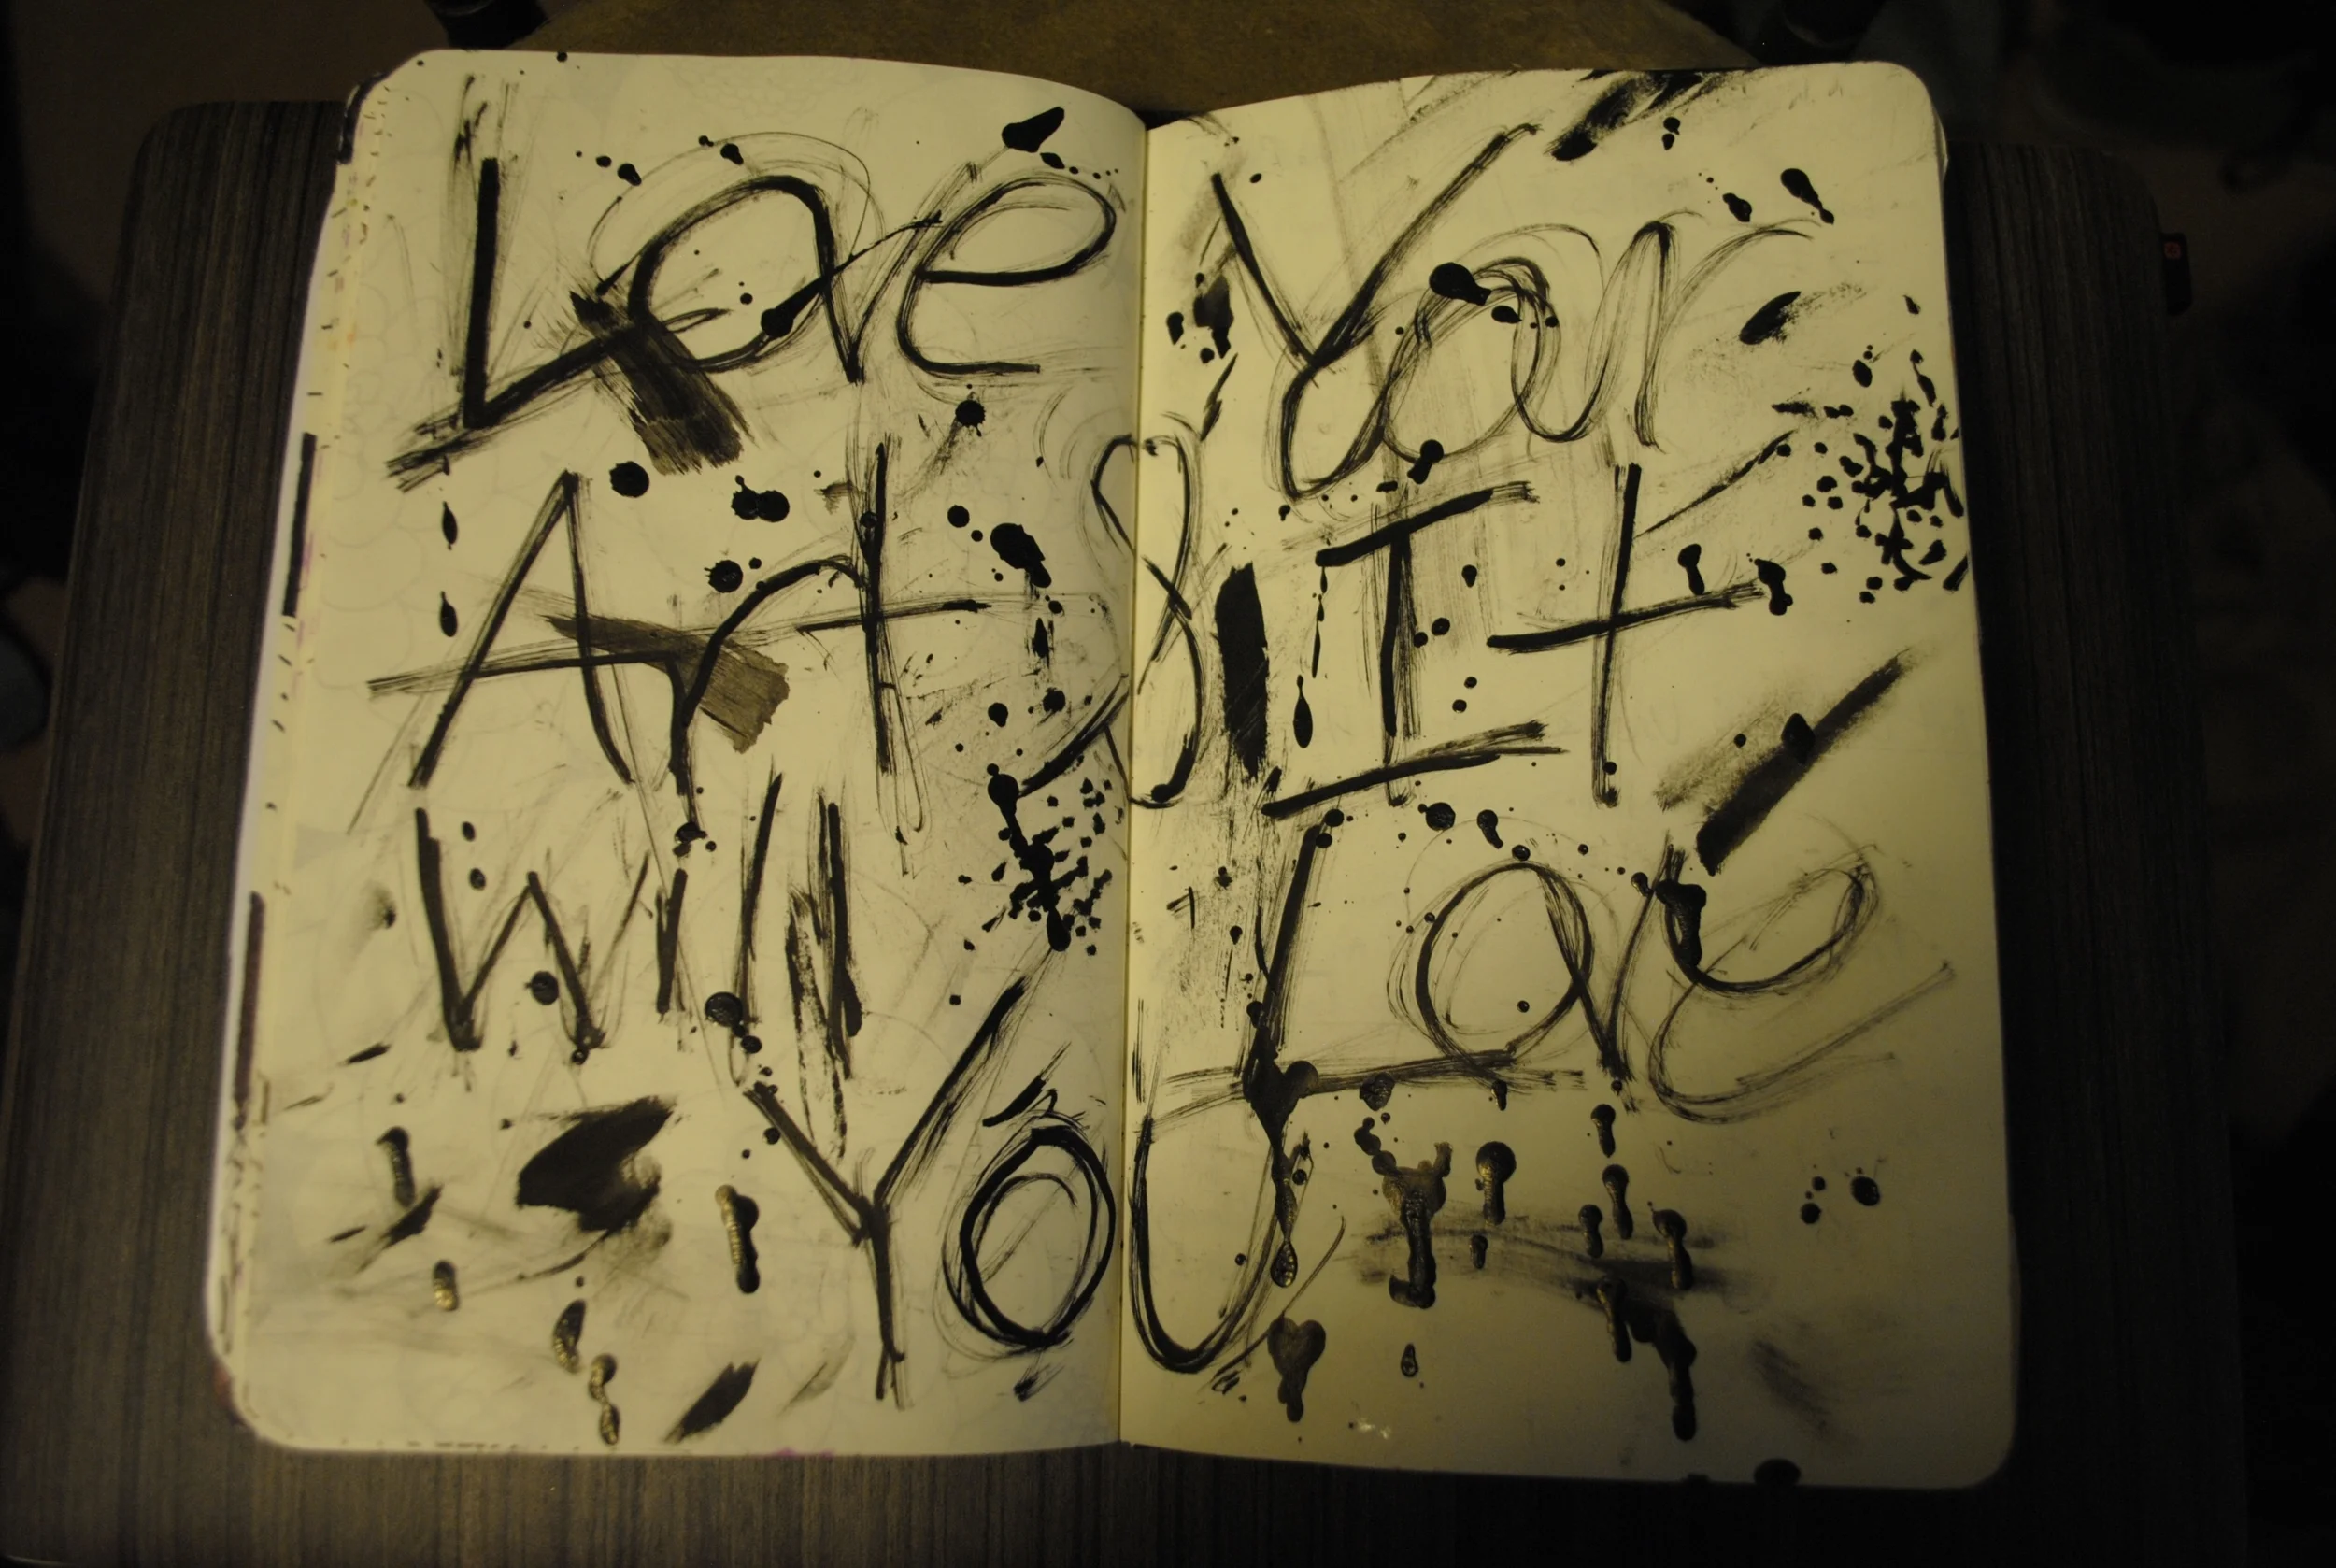 Love Your
Art & It
Will Love
You